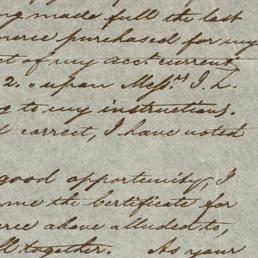 made full the last
purchased for my
of my acct. current
2. upon Messrs J. L.
to my instructions.
correct, I have noted
good opportunity, I
me the Certificate for
above alluded to,
together. As your